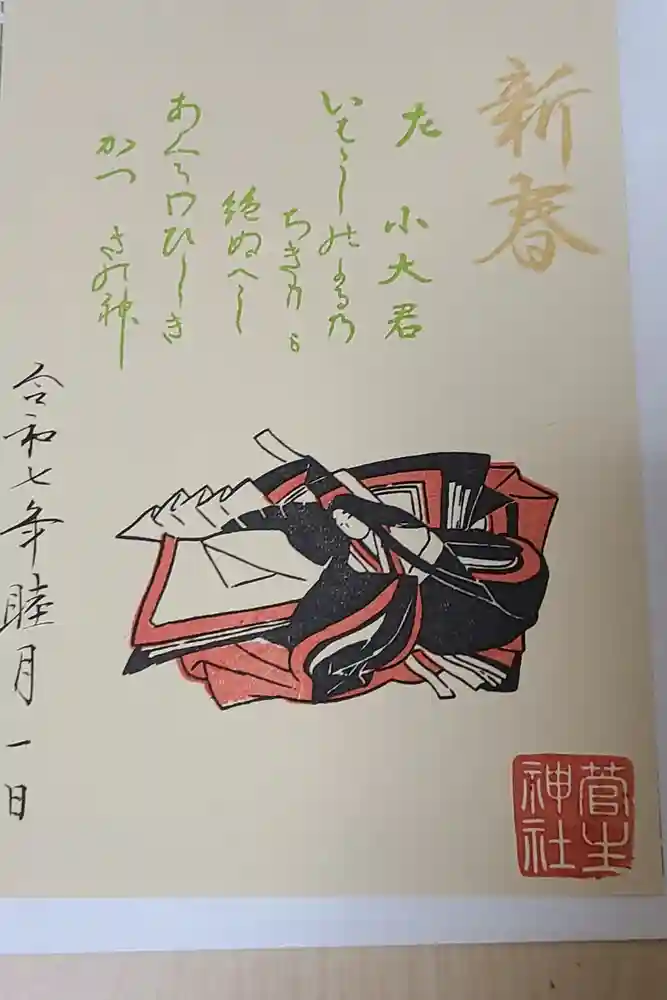 新春
左 小大君
いはゝしのよる乃
ちきりも
絶ぬへし
あくるわひしき
かつらきの神
令和七年睦月一日
菅生
神社